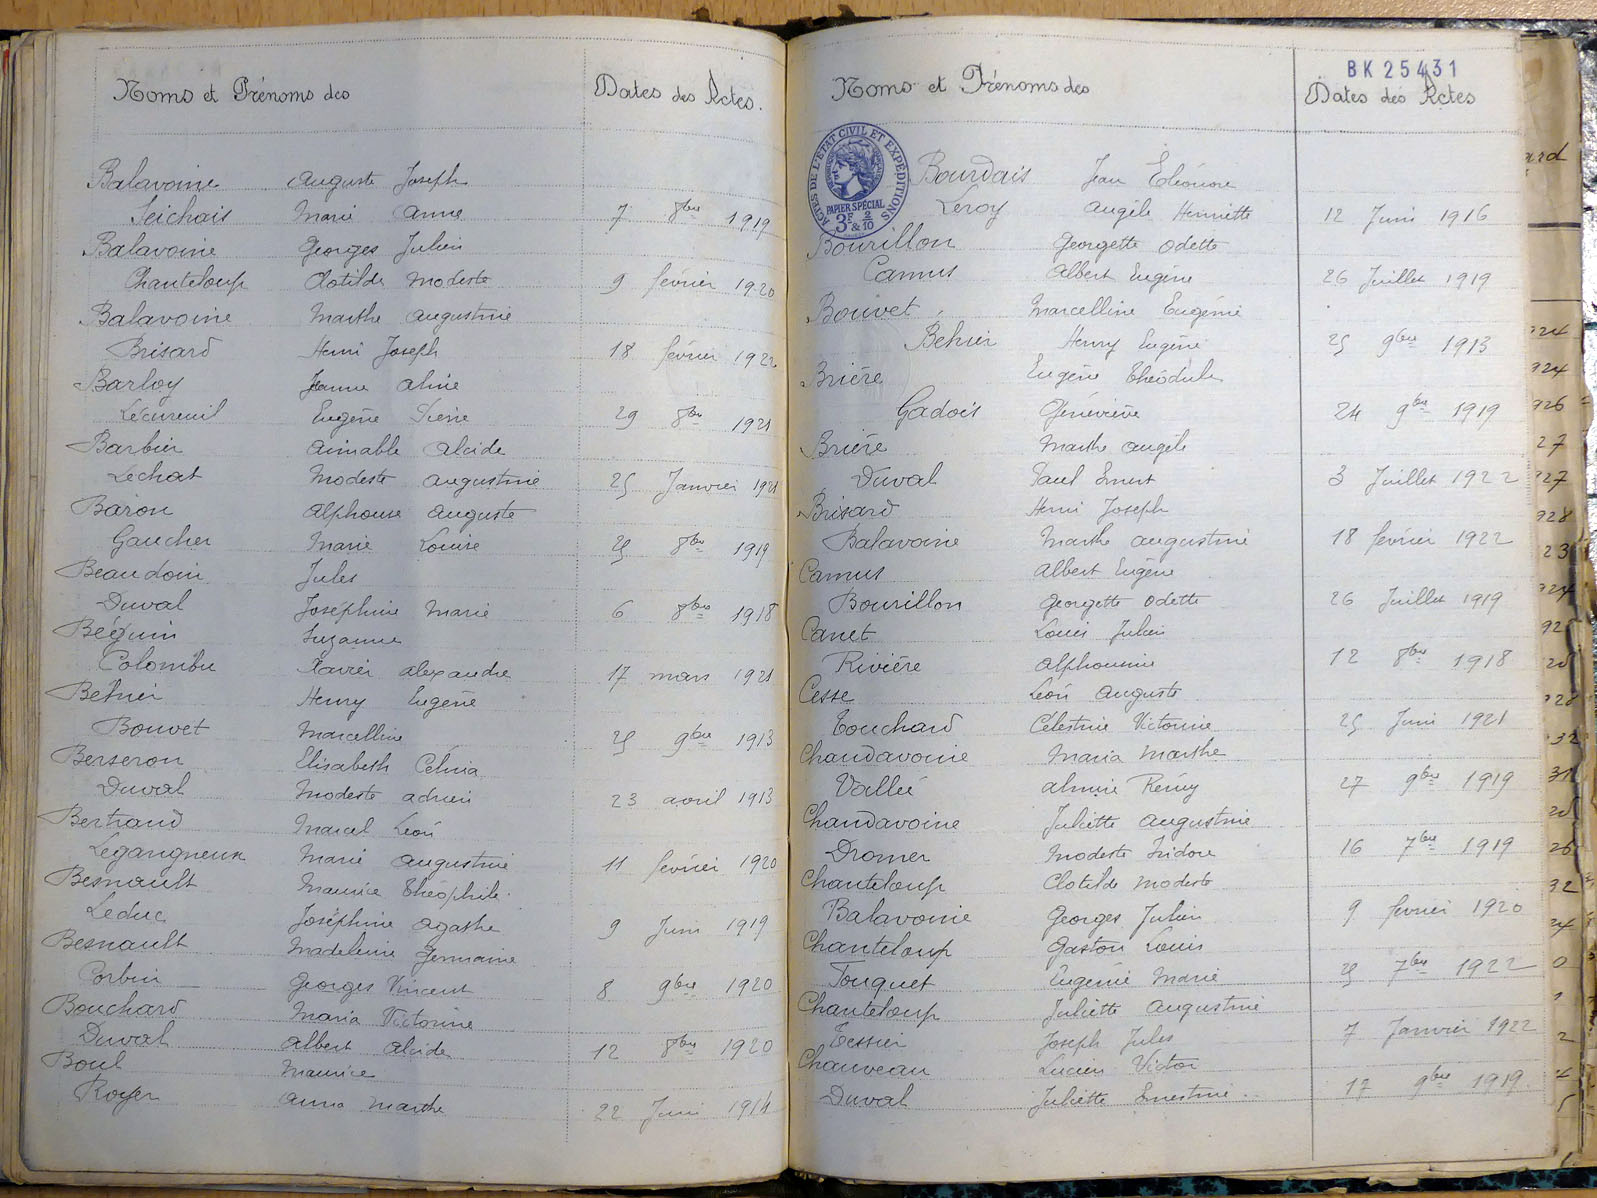 Noms et Prénoms des Dates des Actes.
Balavoine Auguste Joseph
Seichais Marie Anne 7 8bre 1919
Balavoine Georges Julien
Chanteloup Clotilde Modeste 9 février 1920
Balavoine Marthe Augustine
Brisard Henri Joseph 18 février 1922
Barloy Jeanne Aline
Lécureuil Eugène Pierre 29 8bre 1921
Barbier Aimable Alcide
Lechat Modeste Augustine 25 Janvier 1921
Baron Alphonse Auguste
Gaucher Marie Louise 25 8bre 1919
Beaudoin Jules
Duval Joséphine Marie 6 8bre 1918
Béguin Suzanne
Colombu Xavier Alexandre 17 mars 1921
Behier Henry Eugène
Bouvet Marcelline 25 9bre 1913
Berseron Elisabeth Célina
Duval Modeste Adrien 23 avril 1913
Bertrand Marcel Léon
Legangneux Marie Augustine 11 février 1920
Besnault Maurice Théophile
Leduc Joséphine Agathe 9 Juin 1919
Besnault Madeleine Germaine
Corbin Georges Vincent 8 9bre 1920
Bouchard Maria Victorine
Duval Albert Alcide 12 8bre 1920
Boul Maurice
Royer Anna Marthe 22 Juin 1914
BK 25431
Noms et Prénoms des Dates des Actes
ACTES DE L'ETAT CIVIL ET EXPEDITIONS
PAPIER SPÉCIAL
3F & 2/10
Bourdais Jean Eléonore
Leroy Angèle Henriette 12 Juin 1916
Bourillon Georgette Odette
Camus Albert Eugène 26 Juillet 1919
Bouvet Marcelline Eugénie
Behier Henry Eugène 25 9bre 1913
Brière Eugène Théodule
Gadois Geneviève 24 9bre 1919
Brière Marthe Angèle
Duval Paul Ernest 3 Juillet 1922
Brisard Henri Joseph
Balavoine Marthe Augustine 18 février 1922
Camus Albert Eugène
Bourillon Georgette Odette 26 Juillet 1919
Canet Louis Julien
Rivière Alphonsine 12 8bre 1918
Cesse Léon Auguste
Touchard Célestine Victorine 25 Juin 1921
Chandavoine Maria Marthe
Vallée Almire Rémy 27 9bre 1919
Chandavoine Juliette Augustine
Dromer Modeste Isidore 16 7bre 1919
Chanteloup Clotilde Modeste
Balavoine Georges Julien 9 février 1920
Chanteloup Gaston Louis
Touquet Eugénie Marie 25 7bre 1922
Chanteloup Juliette Augustine
Tessier Joseph Jules 7 Janvier 1922
Chauveau Lucien Victor
Duval Juliette Ernestine 17 9bre 1919